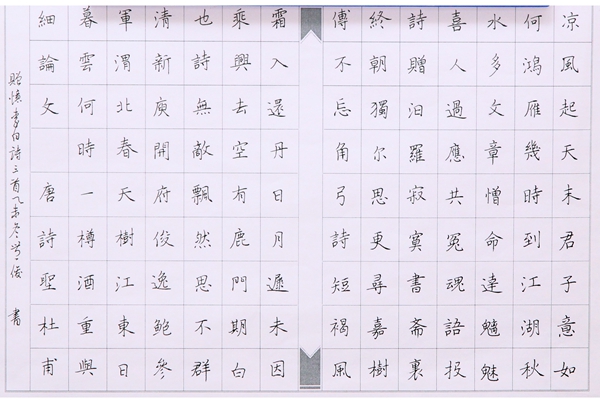 涼風起天末君子意如
何鴻雁幾時到江湖秋
水多文章憎命達魑魅
喜人過應共冤魂語投
詩贈汨羅寂寞書斎裏
終朝獨尔思更尋嘉樹
傳不忘角弓詩短褐風
霜入還丹日月遲未因
乘興去空有鹿門期白
也詩無敵飄然思不群
清新庾開府俊逸鮑參
軍渭北春天樹江東日
暮雲何時一樽酒重與
細論文 唐詩聖杜甫
贈懷李白詩三首乙未冬 俊 書